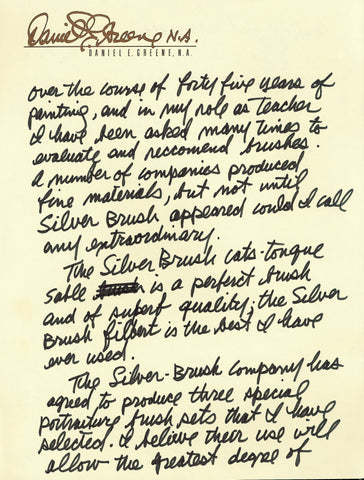 Daniel E. Greene N.A.
DANIEL E. GREENE, N.A.
over the course of forty five years of
painting, and in my role as teacher
I have been asked many times to
evaluate and reccomend brushes.
A number of companies produced
fine materials, but not until
Silver Brush appeared could I call
any extraordinary.
The Silver Brush cats-tongue
sable is a perfect brush
and of superb quality; the Silver
Brush filbert is the best I have
ever used.
The Silver-Brush company has
agreed to produce three special
portraiture brush sets that I have
selected. I believe their use will
allow the greatest degree of